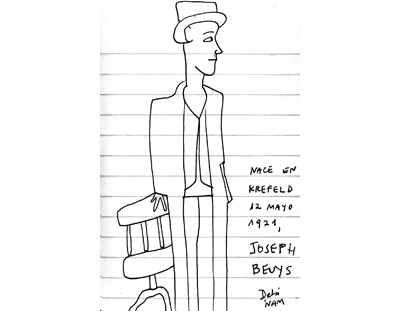 NACE EN
KREFELD
12 MAYO
1921,
JOSEPH
BEUYS
NAM